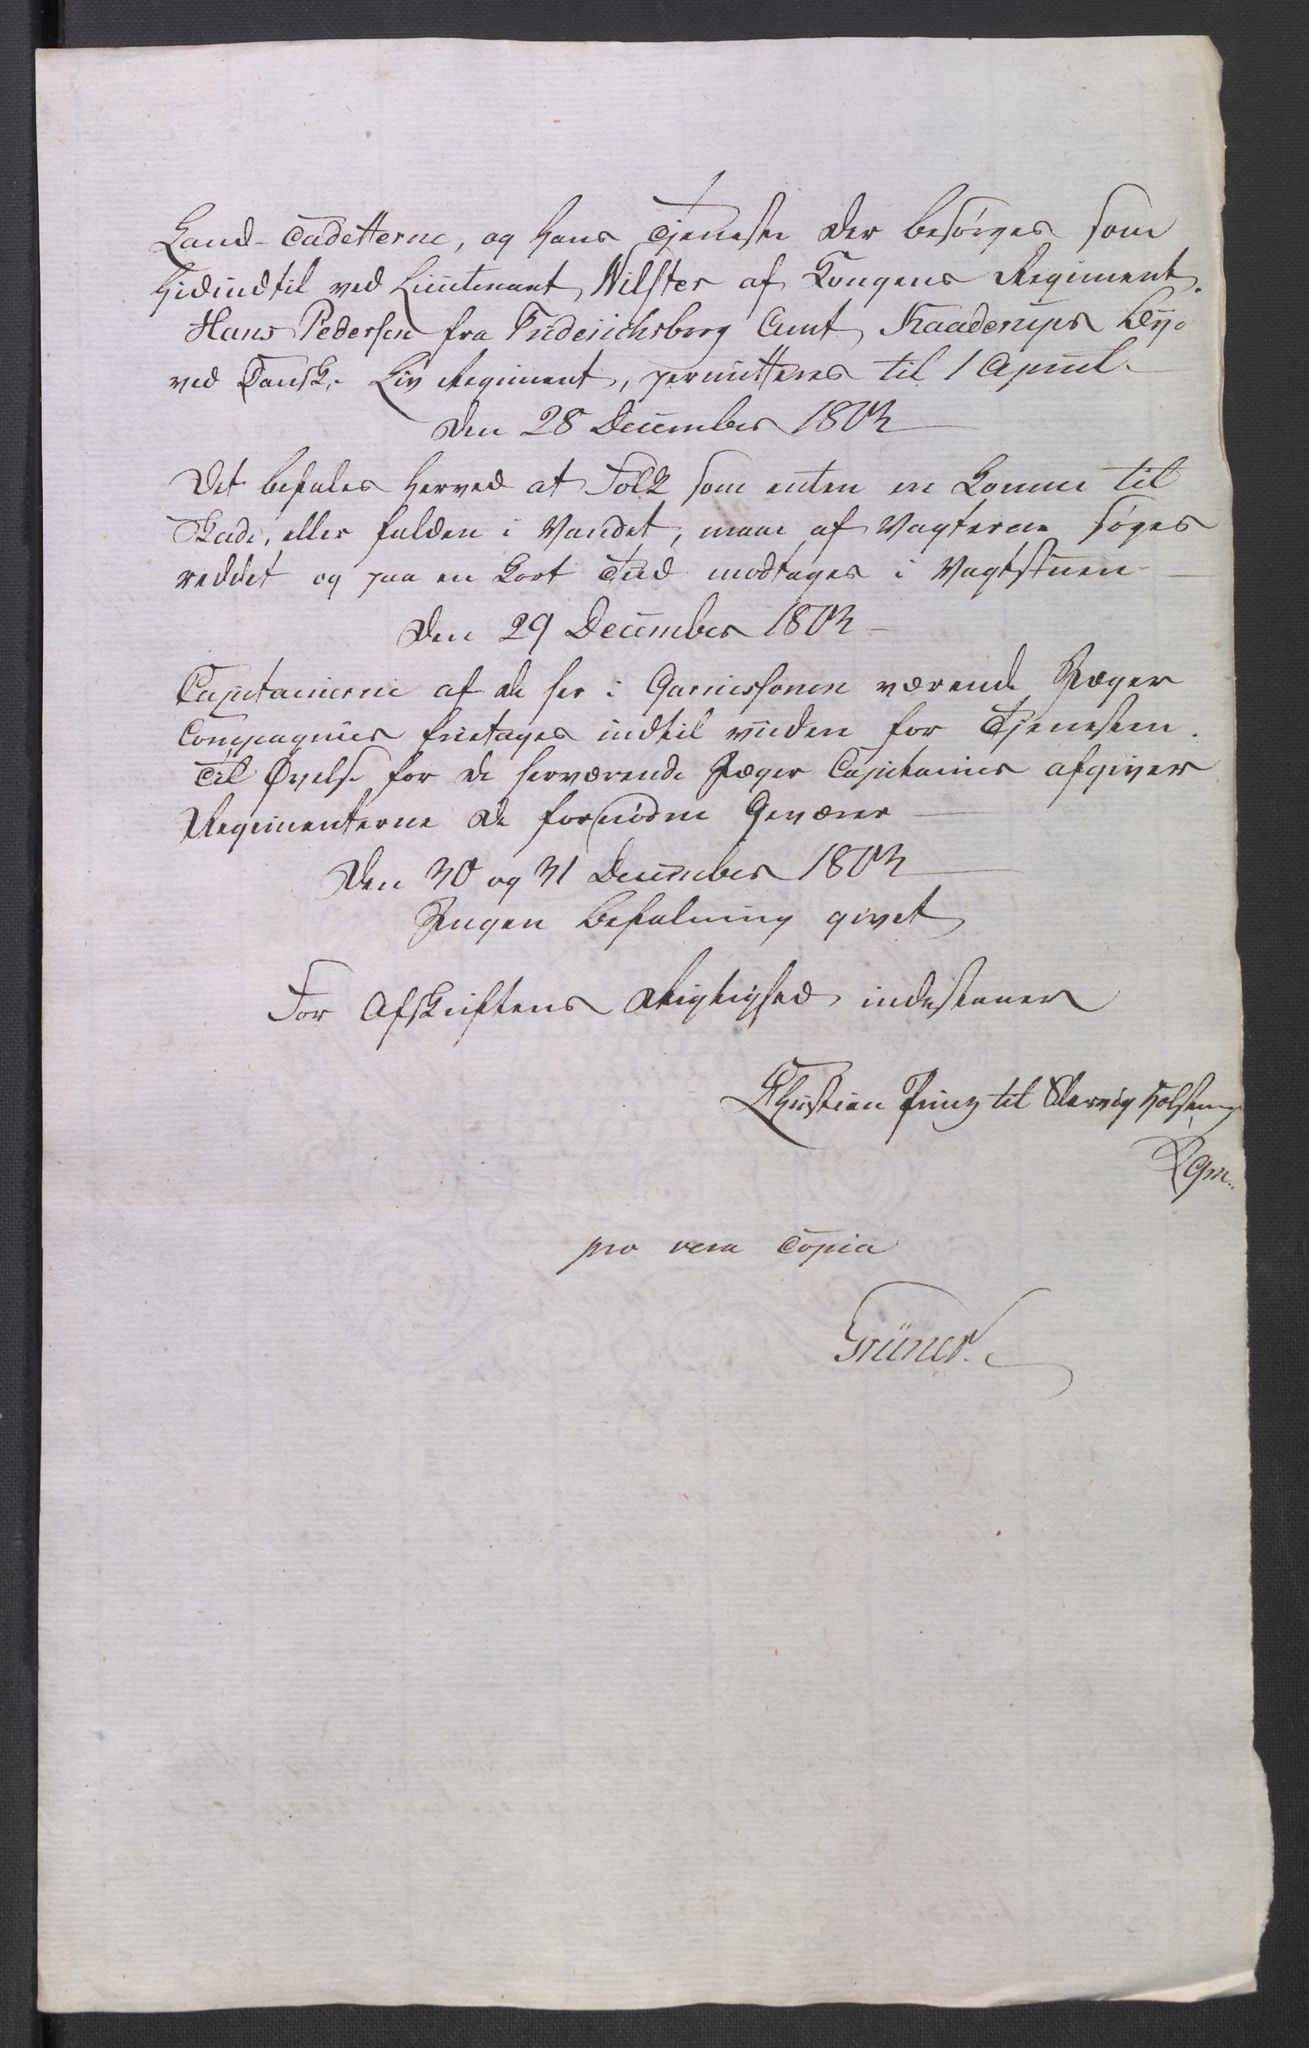 Land-Cadetterne, og hans Tjeneste der besørges som
hidindtil ved Lieutenant Wilster af Kongens Regiment.
Hans Pedersen fra Friderichsborg Amt, Kaaderups Bÿe
ved Dansk. Liv Regiment, permitteres til 1 April.
Den 28 December 1803
Det befales herved at Folk som enten ere komne til
Skade, eller falden i Vandet, maae af Vagterne søges
reddet og paa en kort Tiid modtages i Vagtstuen
Den 29 December 1803
Capitainerne af de her i Garnissonen værende Jæger
Compagnier fritages indtil viidere for Tjenesten.
Til Øvelse for de herværende Jæger Capitainer afgiver
Regimenterne de fornødne Geværer
Den 30 og 31 December 1803
Ingen Befaling givet
For Afskriftens Rigtighed indestaaer
Christian Prinz til Slesvig Holsteen
pro vera Copia
Grüner.